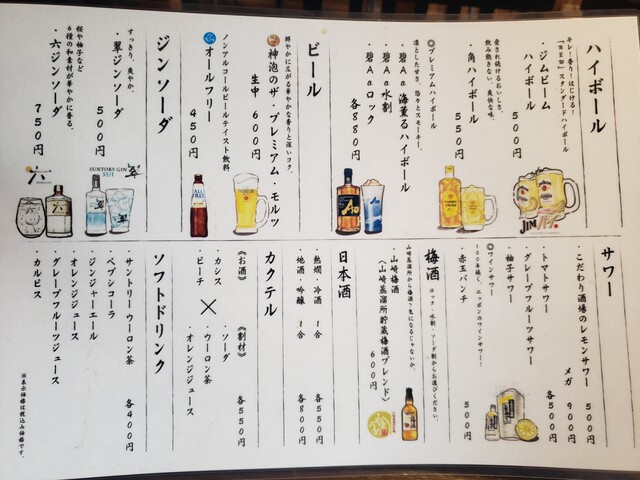 ハイボール
キレ!香り!はじける!
「NEW」スタンダードハイボール
・ジムビーム
ハイボール
500円
愛され続けるおいしさ。
飲み飽きない、爽快な味。
・角ハイボール
550円
◎プレミアムハイボール
凛とした甘さ。悠々とスモーキー。
・碧Ao 海薫るハイボール
・碧Ao水割
・碧Aoロック
各880円
ビール
鮮やかに広がる華やかな香りと深いコク。
神泡のザ・プレミアム・モルツ
生中 600円
ノンアルコールビールテイスト飲料
オールフリー
450円
ジンソーダ
すっきり、爽やか。
・翠ジンソーダ
500円
桜や柚子など
6種の和素材が華やかに香る。
・六ジンソーダ
750円
JIM
ALL FREE
SUNTORY GIN
SUI
翠
六
Ao
サワー
・こだわり酒場のレモンサワー
500円
メガ 900円
・トマトサワー
・グレープフルーツサワー
・柚子サワー
各500円
◎ワインサワー
100年続く、ニッポンのワインサワー!
・赤玉パンチ
500円
梅酒
ロック・水割・ソーダ割からお選びください。
山崎蒸溜所から梅酒?気になるじゃないか。
・山崎梅酒
〈山崎蒸溜所貯蔵梅酒ブレンド〉
600円
日本酒
・熱燗・冷酒 1合 各550円
・地酒・吟醸 1合 各800円
カクテル
各550円
《お酒》
《割材》
・カシス
・ピーチ
×
・ソーダ
・ウーロン茶
・オレンジジュース
ソフトドリンク
各400円
・サントリーウーロン茶
・ペプシコーラ
・ジンジャーエール
・オレンジジュース
・グレープフルーツジュース
・カルピス
※表示価格は税込み価格です。